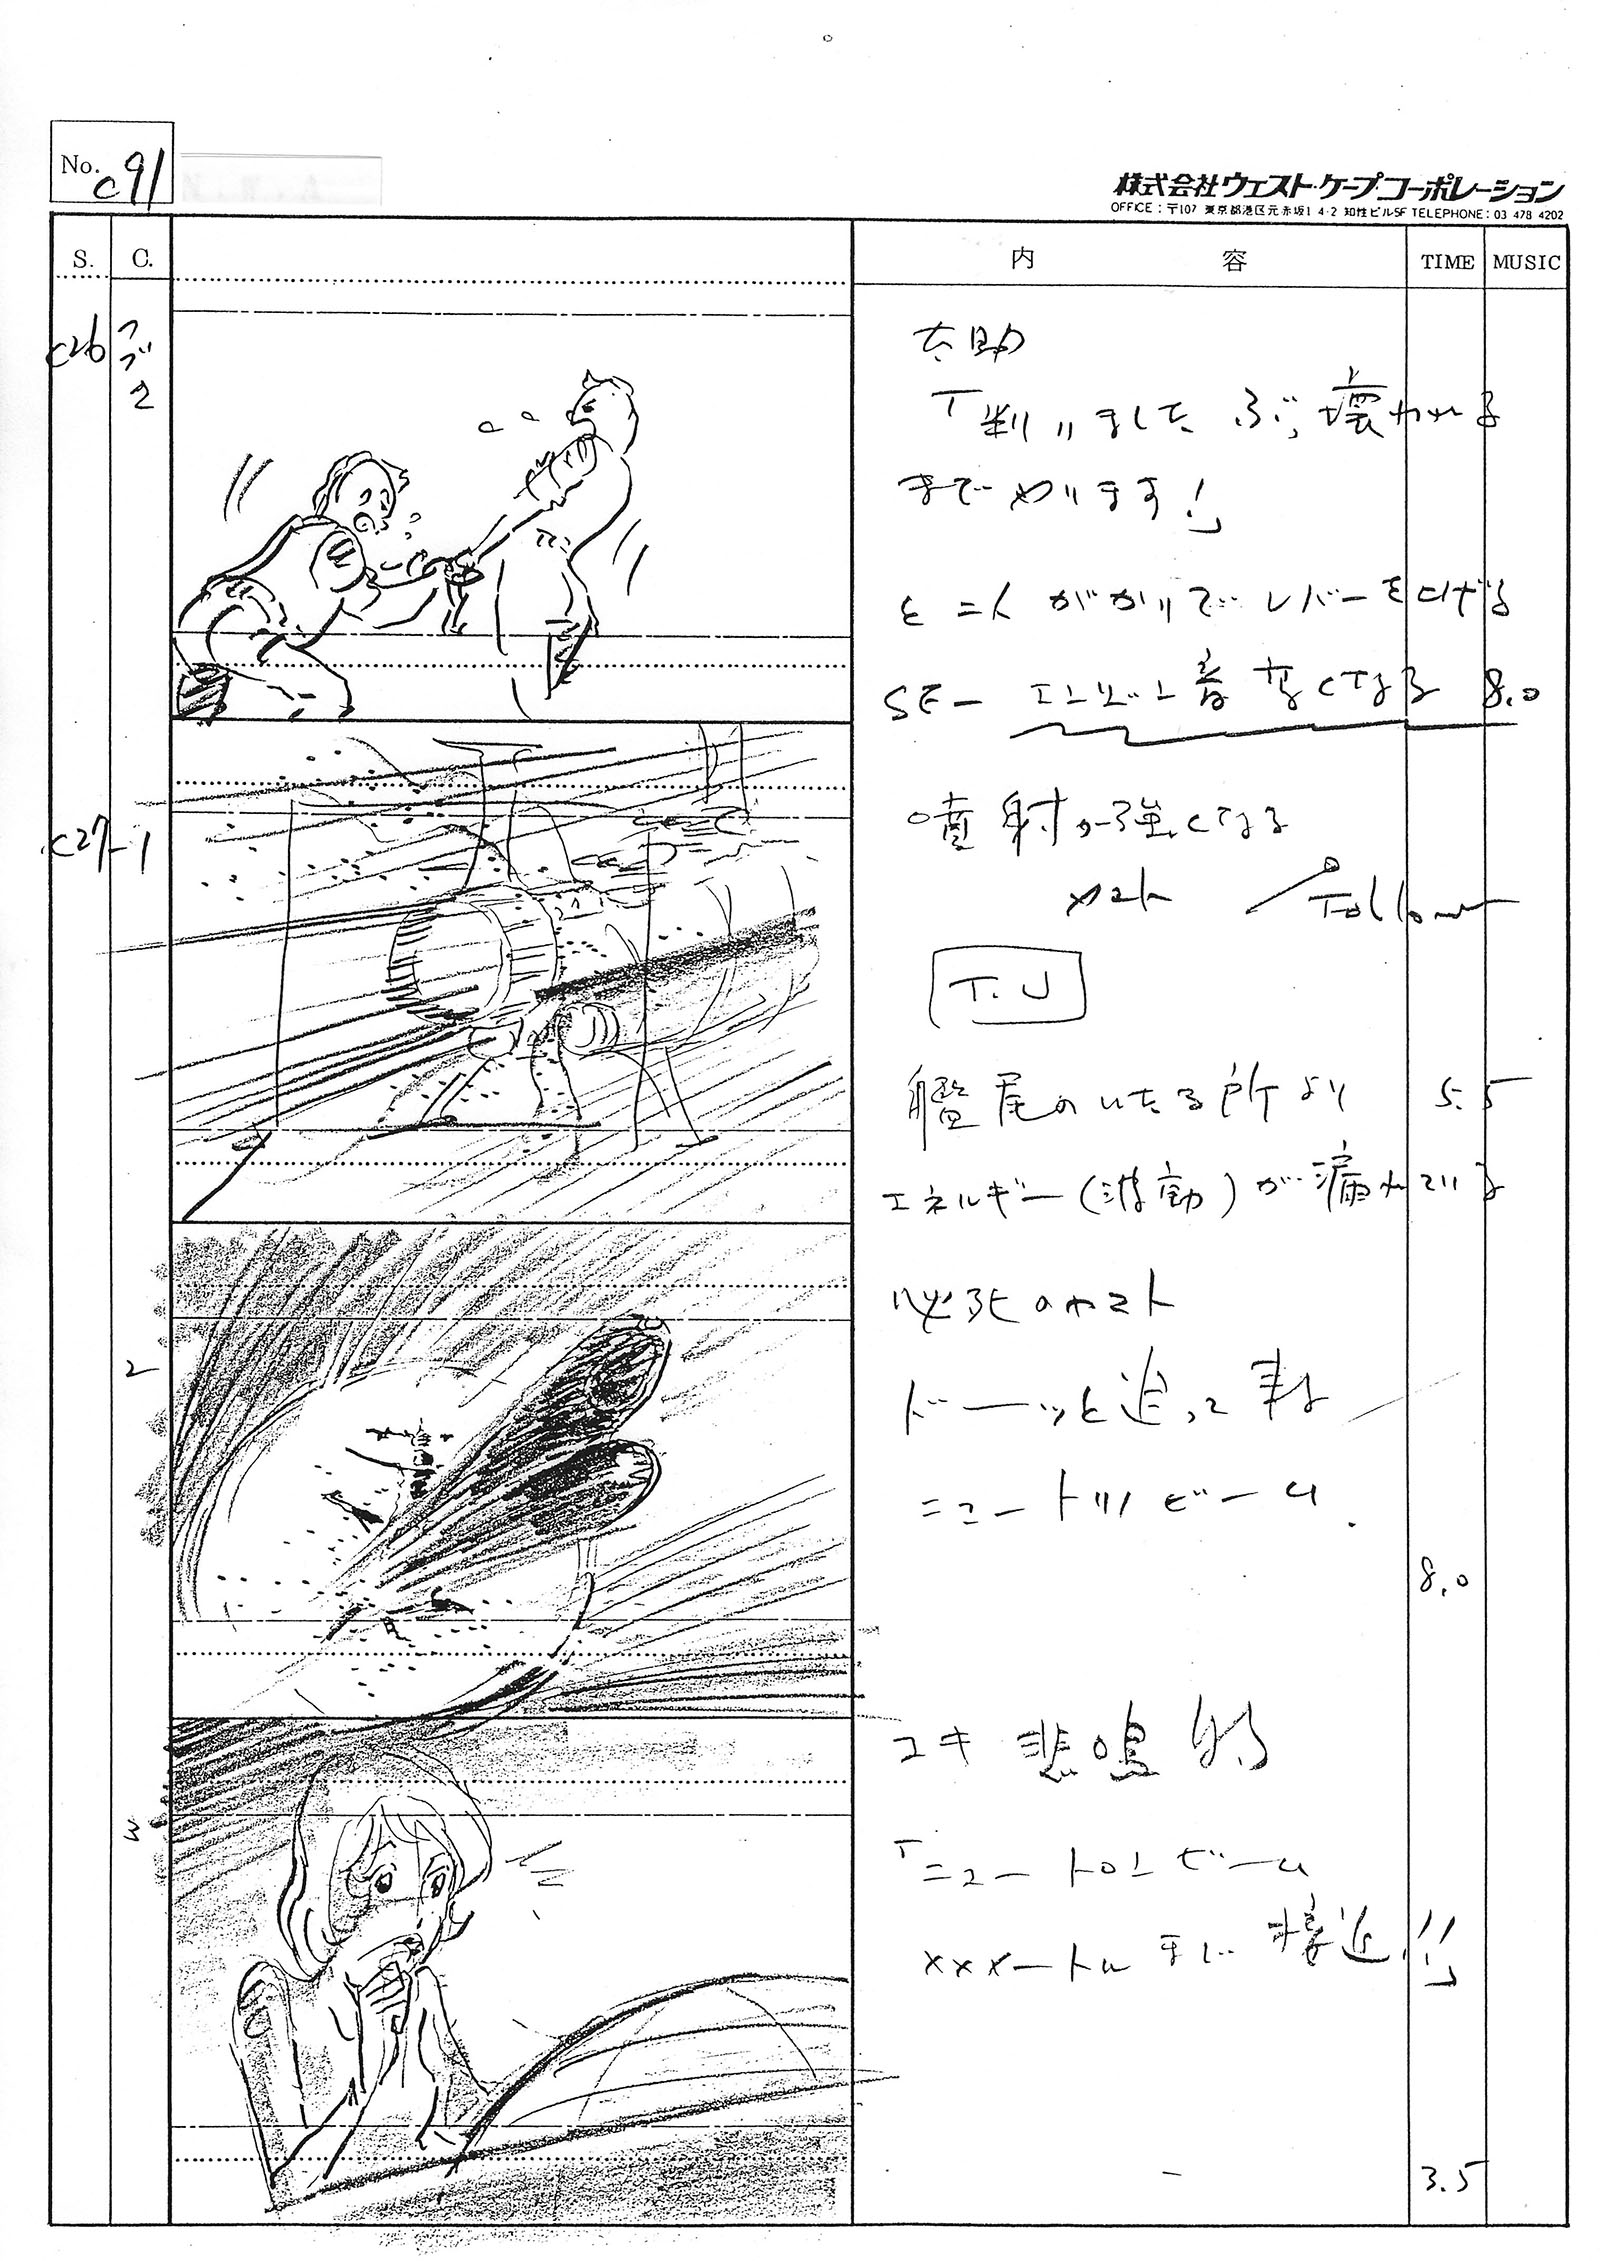 No. c91
株式会社ウエスト・ケープ・コーポレーション
OFFICE：〒107 東京都港区元赤坂1 4-2 知性ビル5F TELEPHONE：03 478 4202
S. C. 内容 TIME MUSIC
c26
太助
「判りました ぶっ壊われる
までやります!」
と二人がかりでレバーを
SE－エンジン音高くなる 8.0
c27-1
噴射が強くなる
ヤマト Follow
T.U
艦尾のいたる所より 5.5
エネルギー(波動)が漏れている
2
必死のヤマト
ドーッと追って来る
ニュートリノビーム
8.0
3
ユキ 悲鳴的
「ニュートロンビーム
×××メートルまで接近!!」
3.5